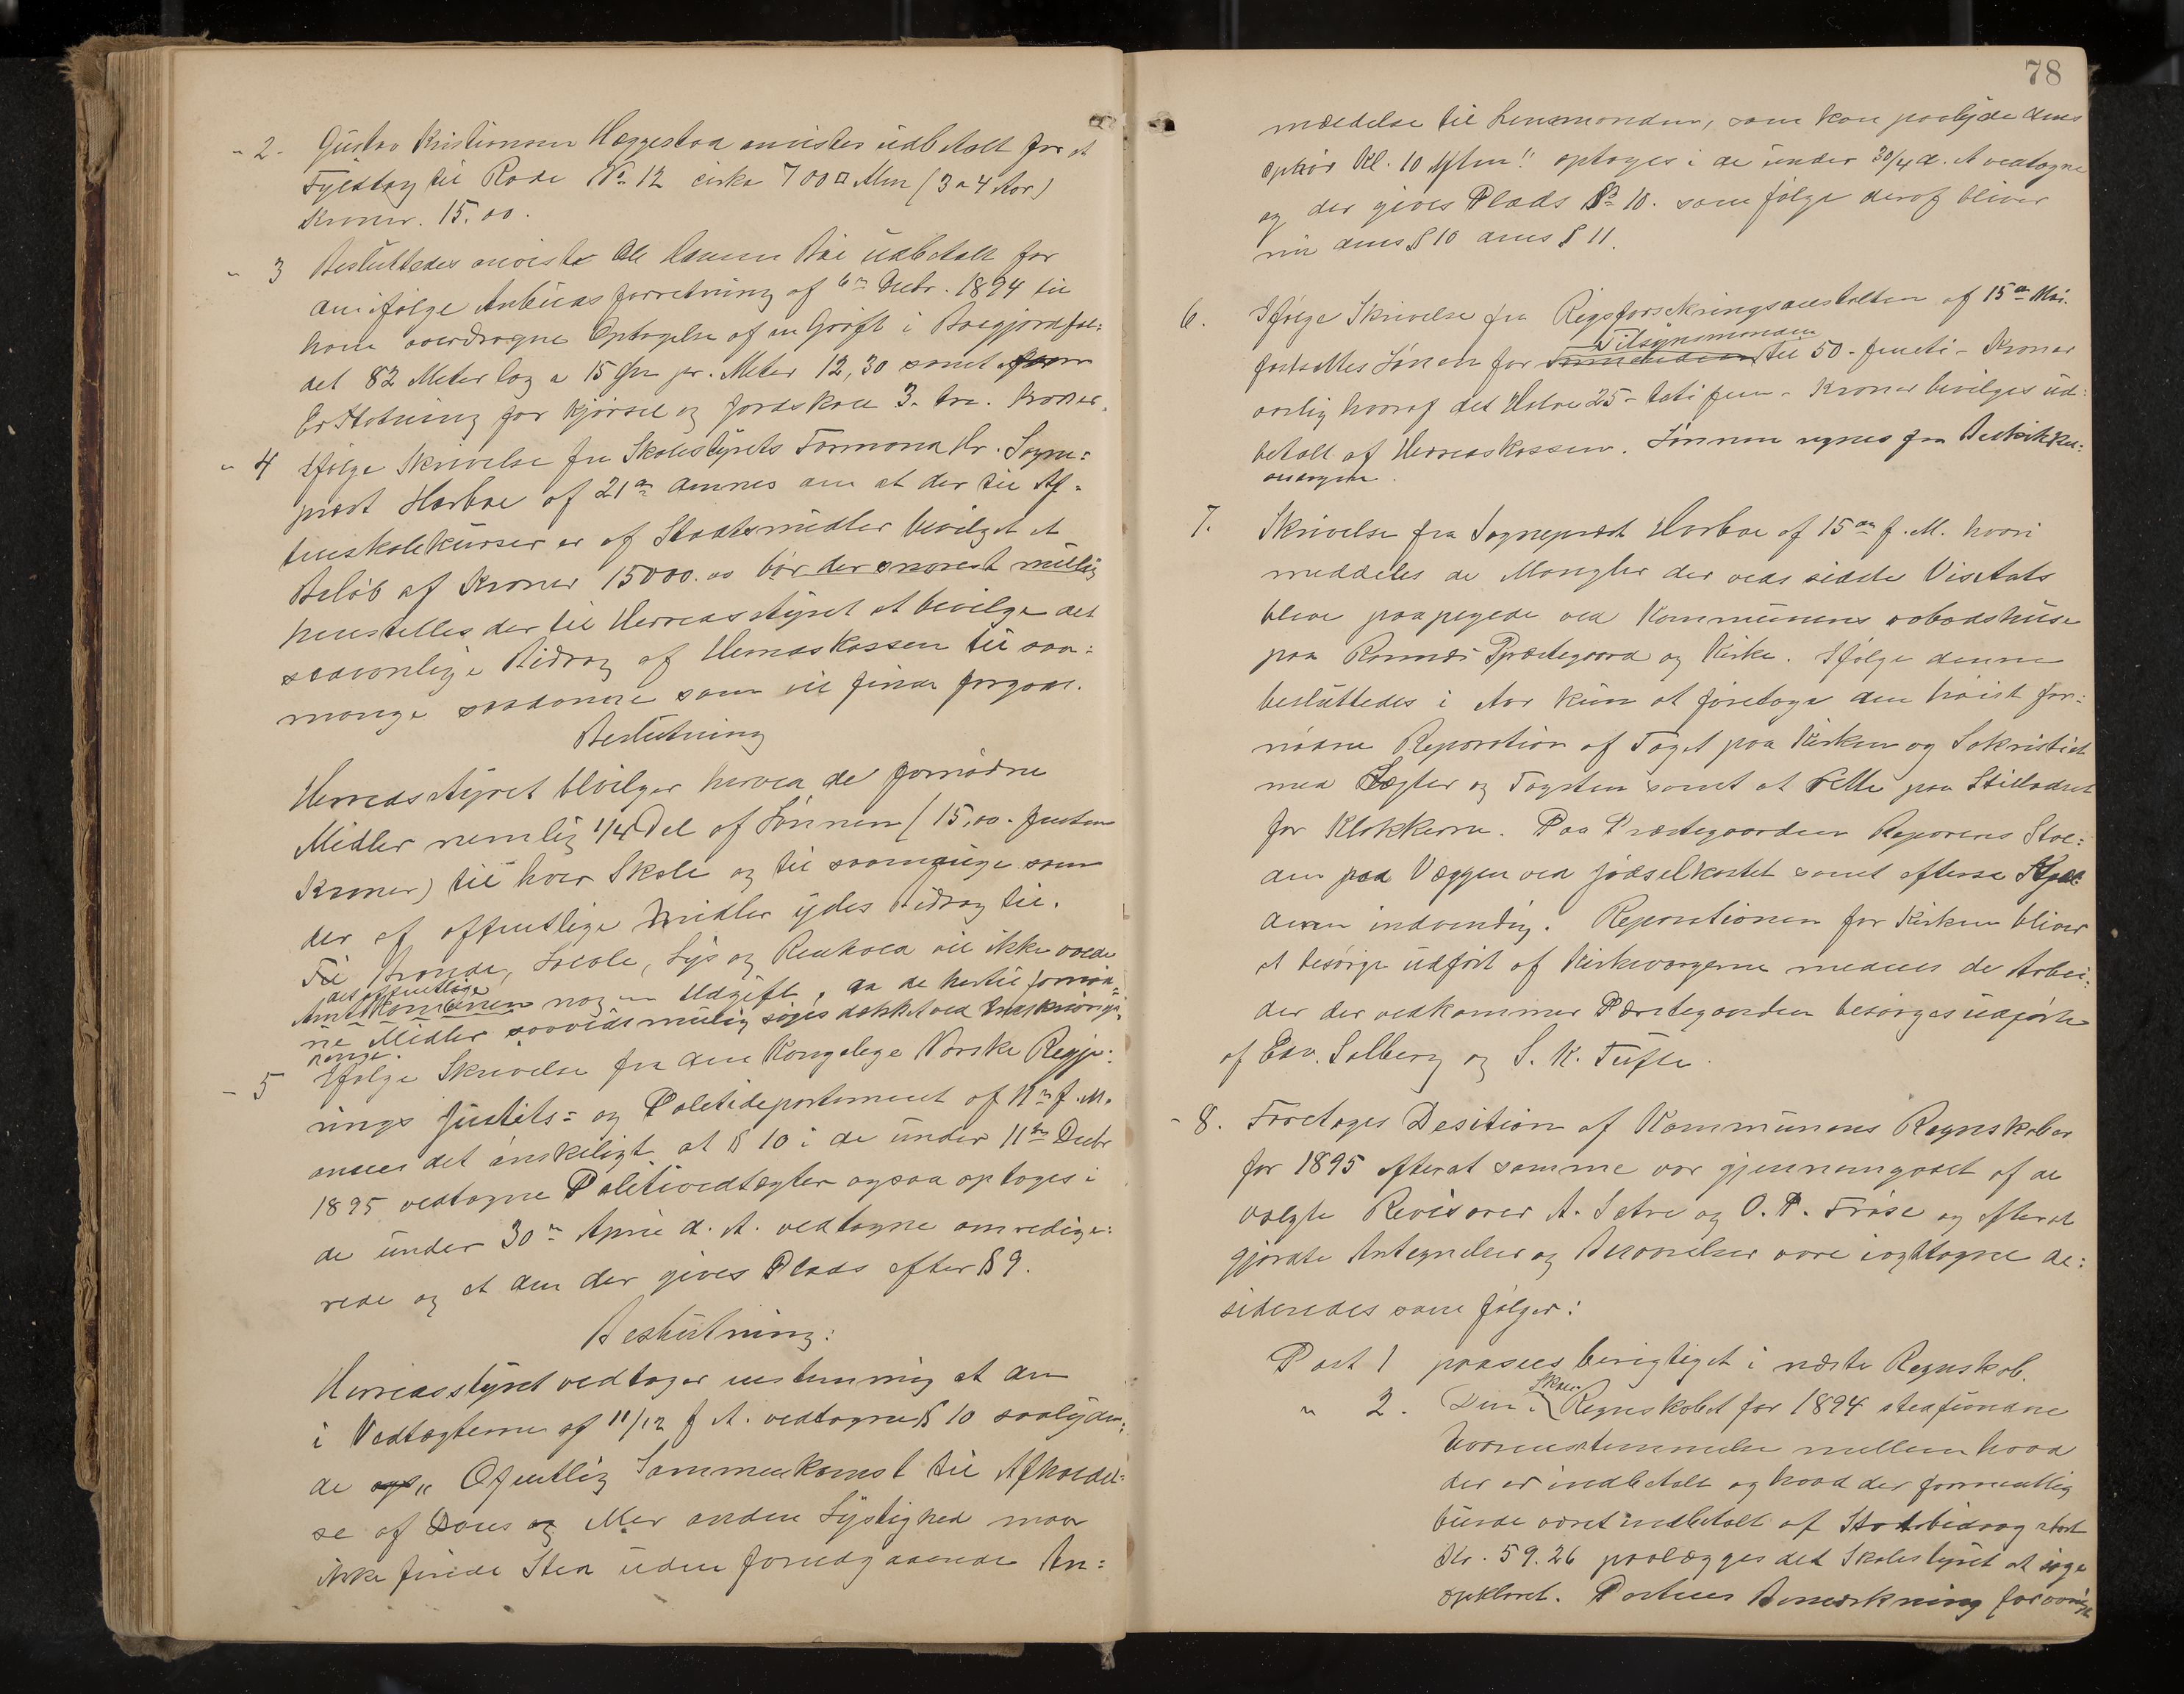 - 2. Gustav Kristiansen Hæggestad anvistes udbetalt for et
Fyldtag til Rode No 12 cirka 700 □ Alen (3 a 4 Aar)
Kroner. 15.00.
" 3 Besluttedes anviste Ole Hansen Bøe udbetalt for
am ifølge Anbudsforretning af 6te Decbr. 1894 til
ham overdragne Optagelse af en Grøft i
det 82 Meter lag a 15 Øre pr. Meter 12,30 samt
Erstatning for Kjørsel og Jordskade 3. tre. Kroner.
" 4 Ifølge Skrivelse fra Skolestyrets Formand Hr. Sogne=
præst Harboe af 21de om at der til Af=
tenskolekurser er af Statsmidler bevilget et
Beløb af Kroner 15000.00 bør der snarest mulig
henstilles der til Herredsstyret at bevilge det
sædvanlige Bidrag af Herredskassen til saa=
mange saadanne som vil finde foregaa.
Beslutning
Herredsstyret bevilger herved de fornødne
Midler nemlig 1/4 Del af Lønnen (15.00. femten
Kroner) til hver Skole og til saamange som
der af offentlige Midler ydes Bidrag til.
Til Brænde, Locale, Lys og Renhold vil ikke volde
det offentlige
Amtskommunen nogen Udgift, da de hertil fornød=
ne Midler saavidt mulig søges dækket ved
penge.
- 5 Ifølge Skrivelse fra den Kongelige Norske Regje=
rings Justits= og Politidepartement af 11te f. M.
ansees det ønskeligt at § 10 i de under 11te Decbr
1895 vedtagne Politivedtægter ogsaa optages i
de under 30te April d. A. vedtagne omredige=
rede og at den der gives Plads efter § 9.
Beslutning:
Herredsstyret vedtager enstemmig at den
i Vedtægterne af 11/12 f A. vedtagne § 10 saalyden=
de „ Ofentlig Sammenkomst til Afholdel=
se af Dans og eller anden Lystighed maa
ikke finde Sted uden forudgaaende An=
78
meldelse til Lensmanden, som kan paabyde dens
ophør Kl. 10 Aften" optages i de under 30/4 d. A vedtagne
og der gives Plads § 10. som følge deraf bliver
nu dens § 10 dens § 11.
6. Ifølge Skrivelse fra Rigsforsikringsanstalten af 15de Mai.
Tilsynsmanden
fastsattes Lønnen for til 50 - femti - Kroner
aarlig hvoraf det Halve 25 - toti fem - Kroner bevilges ud=
betalt af Herredskassen. Lønnen regnes fra
7. Skrivelse fra Sogneprest Harboe af 15de f. M. hvori
meddeles de Mangler der ved sidste Visitats
bleve paapegede ved Kommunens aabodshuse
paa Ramnes Præstegaard og Kirke. Ifølge denne
besluttedes i Aar kun at foretage den høist for=
nødne Reparation af Taget paa Kirken og Sakristiet
med Lægter og Tagsten samt at rette paa Stilladset
for Klokkerne. Paa Præstegaarden Repareres Stal=
den paa Væggen ved Gjødselkastet samt efterse Kjæl=
deren indvendig. Reparationen for Kirken bliver
at besørge udført af Kirkevergerne medens de Arbei=
der der vedkommer Præstegaarden besørges udførte
af Edv. Solberg og S. K. Tufte.
- 8. Foretoges Desition af Kommunens Regnskaber
for 1895 efterat samme var gjennemgaaet af de
valgte Revisorer A. Sætre og O. P. Frøse og efterat
gjordte Antegnelser og Besvarelser vare iagttagne de=
sideredes som følger:
Post 1 paasees berigtiget i næste Regnskab.
" 2. Den i Skole Regnskabet for 1894 stedfundne
Uoverenstemmelse mellem hvad
der er indbetalt og hvad der formentlig
burde været indbetalt af Statsbidrag stort
Kr. 59.26 paalægges det Skolestyret at søge
opklaret. Postens Bemærkning forøvrigt